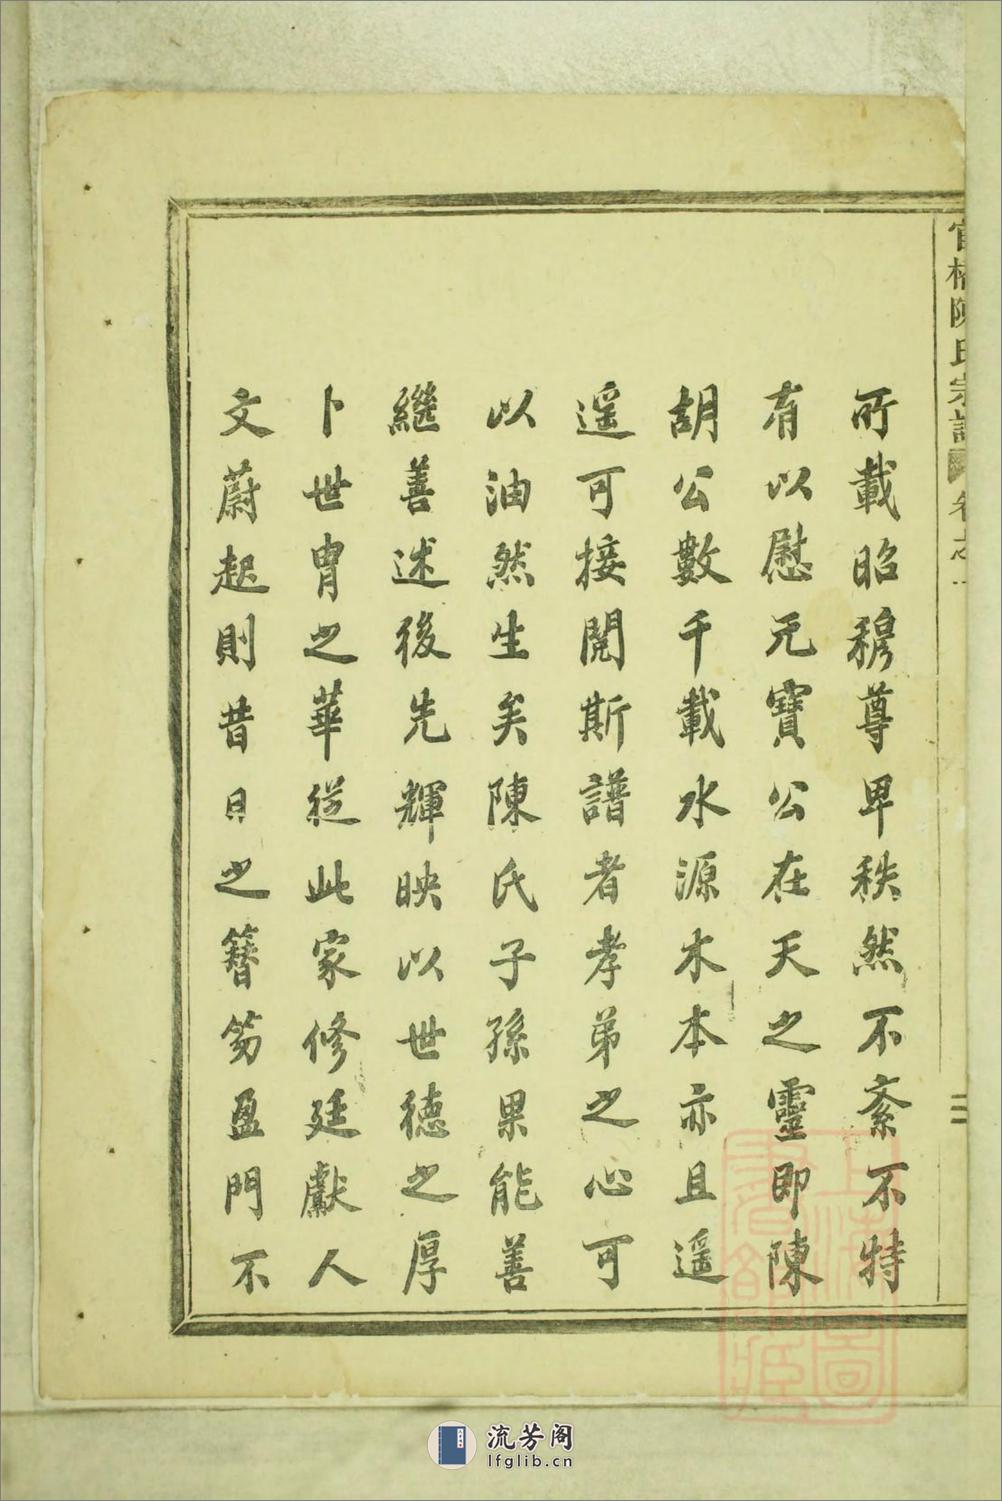 所載昭穆尊卑秩然不紊不特
有以慰元寶公在天之靈即陳
胡公數千載水源木本亦且遥
遥可接閱斯譜者孝弟之心可
以油然生矣陳氏子孫果能善
繼善述後先輝映以世德之厚
卜世胄之華從此家修廷獻人
文蔚起則昔日之簪笏盈門不
陳氏宗譜 卷之一
三
上海圖書館藏
流芳阁
lfglib.cn